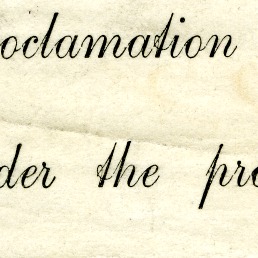 oclamation
der the pro